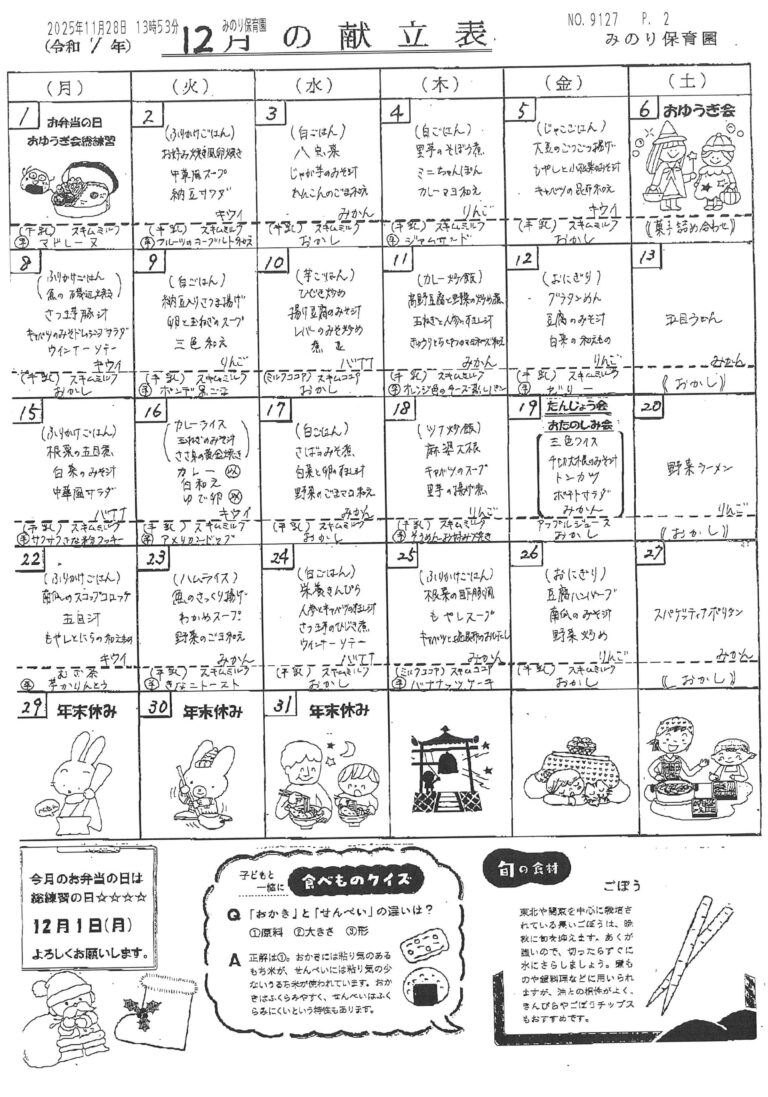 2025年11月28日 13時53分 みのり保育園
NO. 9127 P. 2
(令和 7 年) 12月の献立表 みのり保育園
(月) (火) (水) (木) (金) (土)
1 お弁当の日
おゆうぎ会総練習
(牛乳) スキムミルク
マドレーヌ
2
(ふりかけごはん)
お好み焼き風卵焼き
中華風スープ
納豆サラダ
キウイ
(牛乳) スキムミルク
フルーツのヨーグルト和え
3
(白ごはん)
八宝菜
じゃが芋のみそ汁
れんこんのごま和え
みかん
(牛乳) スキムミルク
おかし
4
(白ごはん)
里芋のそぼろ煮
ミニちゃんぽん
カレーマヨ和え
りんご
(牛乳) スキムミルク
ジャムサンド
5
(じゃこごはん)
大豆のごつごつ揚げ
もやしと小松菜のみそ汁
キャベツの昆布和え
キウイ
(牛乳) スキムミルク
おかし
6 おゆうぎ会
《菓子詰め合わせ》
8
ふりかけごはん
魚の磯辺焼き
さつま芋豚汁
キャベツのみそドレッシングサラダ
ウインナーソテー
キウイ
(牛乳) スキムミルク
おかし
9
(白ごはん)
納豆入りさつま揚げ
卵と玉ねぎのスープ
三色和え
りんご
(牛乳) スキムミルク
ポンデ黒ごま
10
(芋ごはん)
ひじき炒め
揚げ豆腐のみそ汁
レバーのみそ炒め
バナナ
(ミルクココア) スキムココア
おかし
11
(カレー炒飯)
高野豆腐と野菜の炒め煮
玉ねぎと人参のすまし汁
みかん
(牛乳) スキムミルク
オレンジ色のチーズ蒸しパン
12
(おにぎり)
グラタンめん
豆腐のみそ汁
白菜の和えもの
りんご
(牛乳) スキムミルク
ゼリー
13
五目うどん
みかん
《おかし》
15
(ふりかけごはん)
根菜の五目煮
白菜のみそ汁
中華風サラダ
バナナ
(牛乳) スキムミルク
サクサクきな粉クッキー
16
カレーライス
玉ねぎのみそ汁
ささ身の黄金焼き
カレー
白和え
ゆで卵
キウイ
(牛乳) スキムミルク
アメリカンドッグ
17
(白ごはん)
さばのみそ煮
白菜と卵のすまし汁
野菜のごまマヨ和え
みかん
(牛乳) スキムミルク
おかし
18
(ツナ炒飯)
麻婆大根
キャベツのスープ
里芋の揚げ煮
りんご
(牛乳) スキムミルク
そうめんお好み焼き
19 たんじょう会
おたのしみ会
三色ライス
切干大根のみそ汁
トンカツ
ポテトサラダ
みかん
アップルジュース
おかし
20
野菜ラーメン
りんご
《おかし》
22
(ふりかけごはん)
南瓜のスコップコロッケ
五目汁
もやしとにらの和えもの
キウイ
むぎ茶
芋かりんとう
23
(ハムライス)
魚のさっくり揚げ
わかめスープ
野菜のごま和え
みかん
(牛乳) スキムミルク
きなこトースト
24
(白ごはん)
栄養きんぴら
人参とキャベツのすまし汁
さつま芋のひじき煮
ウインナーソテー
バナナ
(牛乳) スキムミルク
おかし
25
(ふりかけごはん)
もやしスープ
みかん
(ミルクココア) スキムココア
バナナッツケーキ
26
(おにぎり)
豆腐ハンバーグ
南瓜のみそ汁
野菜炒め
りんご
(牛乳) スキムミルク
おかし
27
スパゲッティナポリタン
みかん
《おかし》
29 年末休み
30 年末休み
31 年末休み
今月のお弁当の日は
総練習の日☆☆☆☆
12月1日(月)
よろしくお願いします。
子どもと一緒に 食べものクイズ
Q 「おかき」と「せんべい」の違いは?
①原料 ②大きさ ③形
A 正解は①。おかきには粘り気のある
もち米が、せんべいには粘り気の少
ないうるち米が使われています。おか
きはふくらみやすく、せんべいはふく
らみにくいという特性もあります。
旬の食材
ごぼう
東北や関東を中心に栽培さ
れている長いごぼうは、晩
秋に旬を迎えます。あくが
強いので、切ったらすぐに
水にさらしましょう。煮も
のや鍋料理などに用いられ
ますが、油との相性がよく、
きんぴらやごぼうチップス
もおすすめです。